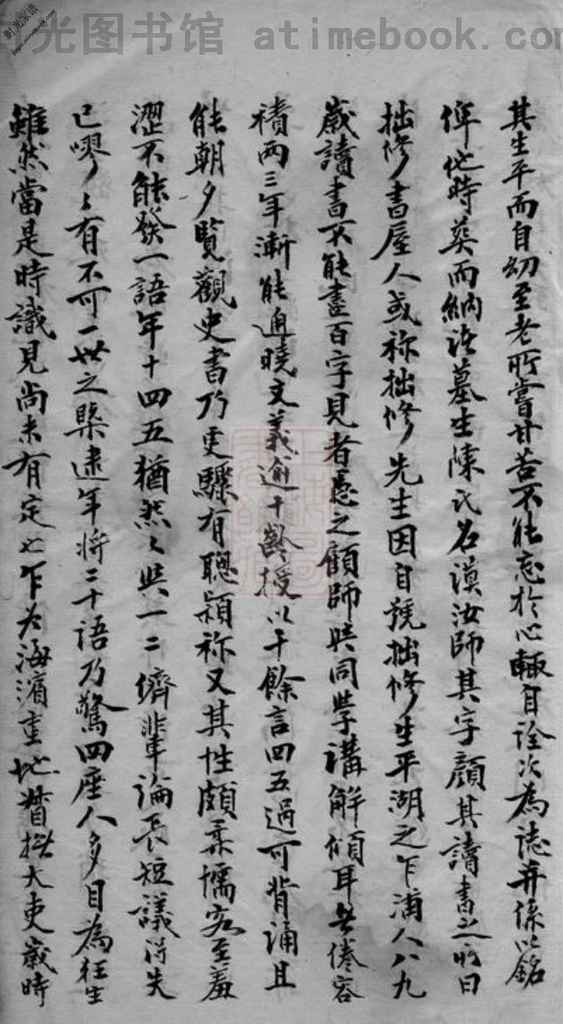 光图书馆 atimebook.com
其生平而自幼至老所嘗甘苦不能忘於心輒自詮次為誌并係以銘
俾他時葬而納諸墓生陳氏名漠汝師其字顏其讀書之所曰
拙修書屋人或称拙修先生因自號拙修生平湖之乍浦人八九
歲讀書不能盡百字見者憨之顧師與同學講解傾耳無倦容
積兩三年漸能通曉文義逾十齡授以千餘言四五過可背誦且
能朝夕覽觀史書乃更驟有聰穎称又其性頗柔懦客至羞
澀不能發一語年十四五猶然々與一二儕輩論長短議得失
已嘐々有不可一世之槩逮年將二十語乃驚四座人多目為狂生
雖然當是時識見尚未有定也乍為海濱重地督撫大吏歲時